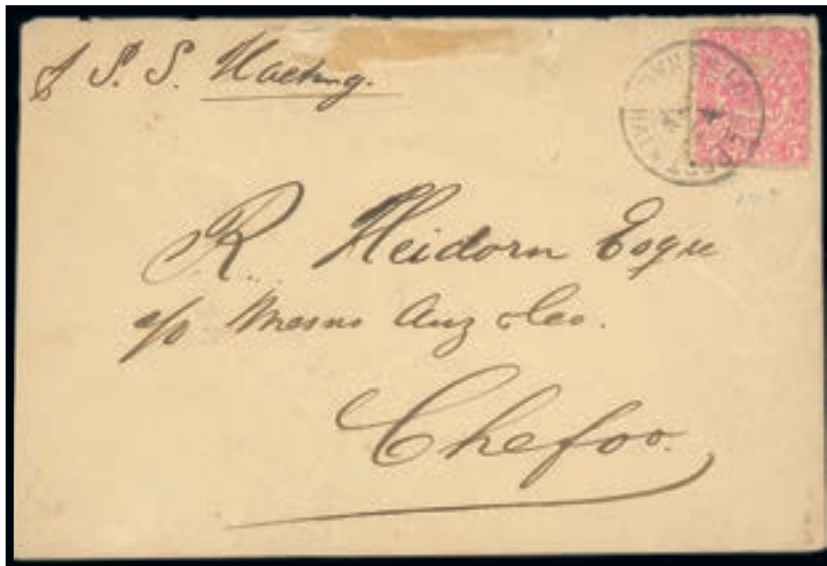 S. S. Haeting.
R. Heidorn Esqre
c/o Messrs Anz & Co.
Chefoo.